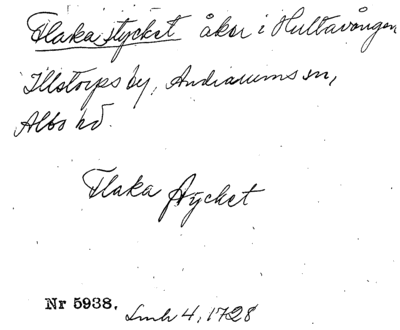 Flaka stycket åker i Hultavången
Illstorps by, Andrarums sn,
Albo hd.
Flaka stycket
Nr 5938. Lmh 4, 1728